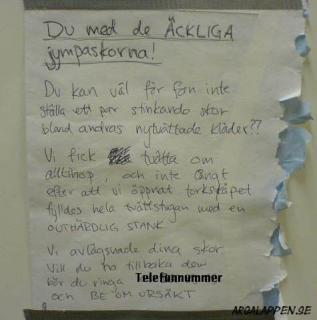 Du med de ÄCKLIGA
jympaskorna!
Du kan väl för fan inte
ställa ett par stinkande skor
bland andras nytvättade kläder??
Vi fick tvätta om
alltihop, och inte långt
efter att vi öppnat torkskåpet
fylldes hela tvättstugan med en
OUTHÄRDLIG STANK.
Vi avlägsnade dina skor.
Vill du ha tillbaka dem
bör du ringa Telefonnummer
och BE OM URSÄKT
ARGALAPPEN.SE